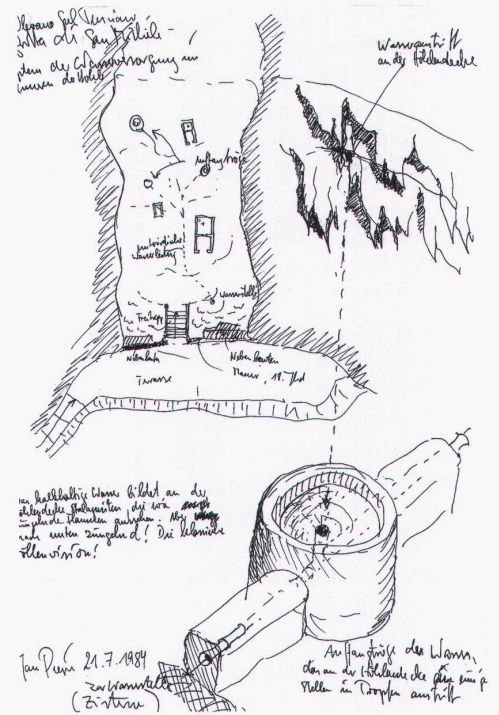 Grotta di San Michele -
System der Wasserversorgung im
Inneren der Höhle
Wasseraustritt
an der Höhlendecke
Auffangtröge
unterirdische
Wasserleitung
Wasserstelle
Freitreppe
Nebenbauten
Mauer, 18. Jhd
Terrasse
kalkhaltige Wasser bildet an der
Höhlendecke Stalagmiten, die wie
züngelnde Flammen aussehen,
nach unten züngelnd! Die klassische
Höllenvision!
Jan Pieper 21.7.1984
zur Wasserstelle
(Zisterne)
Auffangtröge des Wassers,
das an der Höhlendecke
Stellen in Tropfen austritt